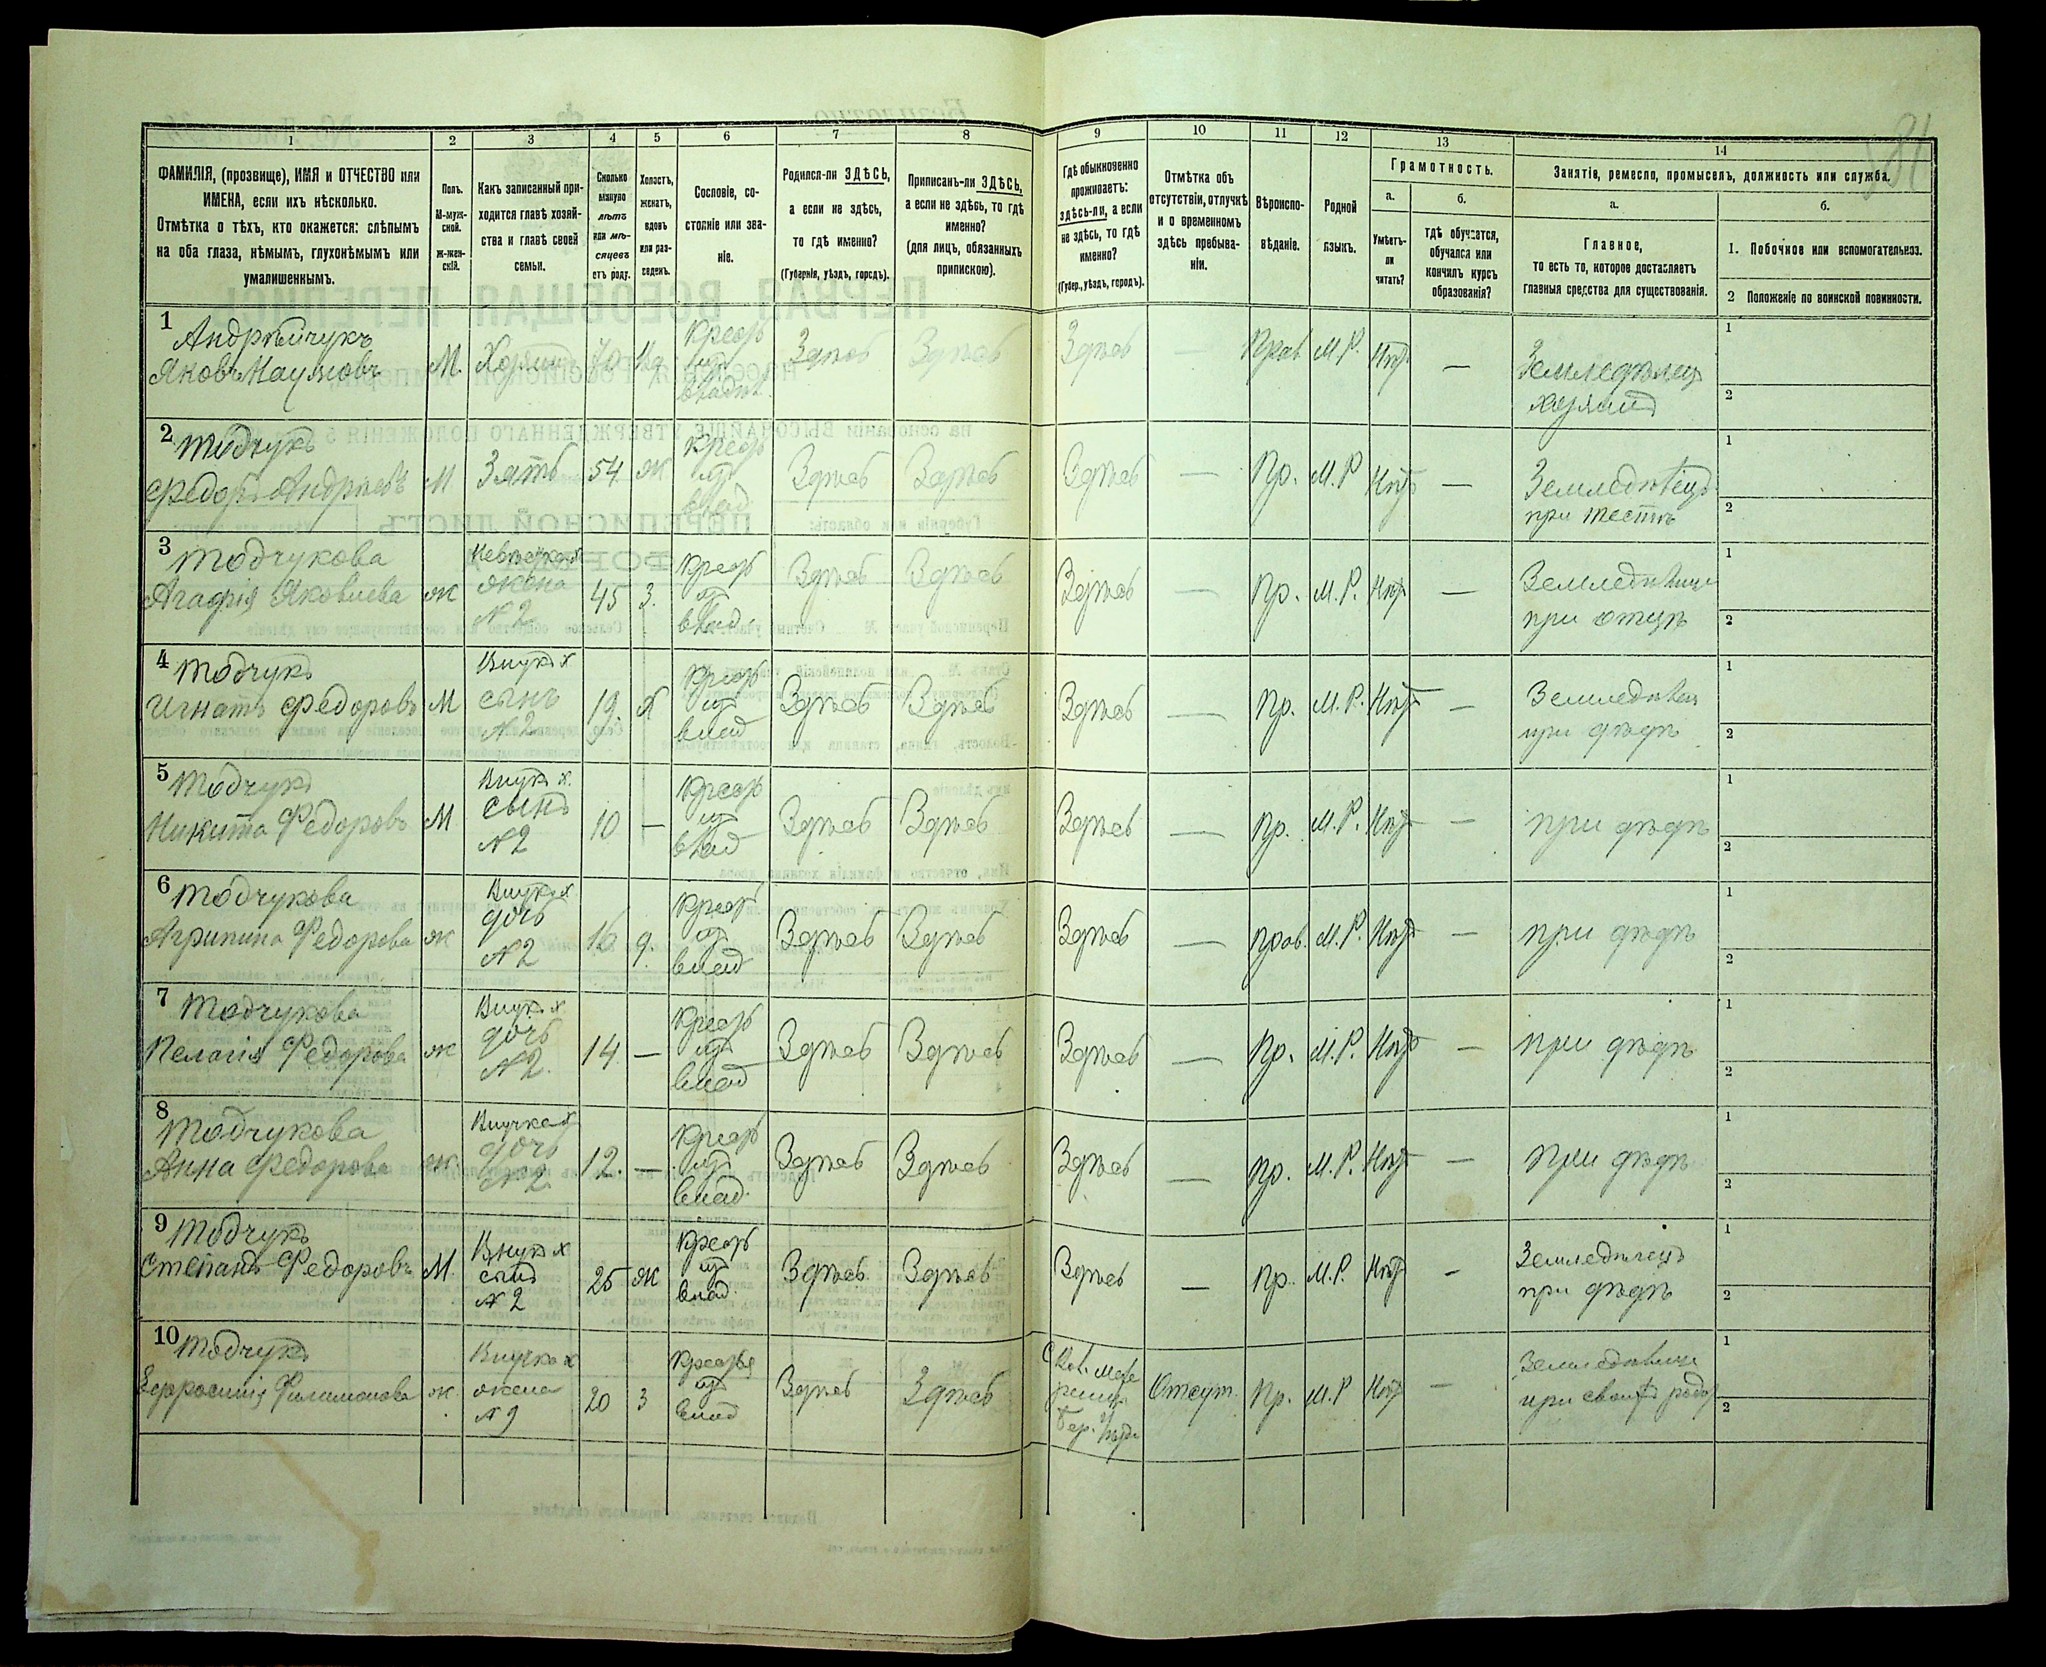 181
1 2 3 4 5 6 7 8 9 10 11 12 13 14
ФАМИЛІЯ, (прозвище), ИМЯ и ОТЧЕСТВО или
ИМЕНА, если ихъ нѣсколько.
Отмѣтка о тѣхъ, кто окажется: слѣпымъ
на оба глаза, нѣмымъ, глухонѣмымъ или
умалишеннымъ.
Полъ.
М-муж-
ской.
Ж-жен-
скій.
Какъ записанный при-
ходится главѣ хозяй-
ства и главѣ своей
семьи.
Сколько
минуло
лѣтъ
или мѣ-
сяцевъ
отъ роду.
Холостъ,
женатъ,
вдовъ
или раз-
веденъ.
Сословіе, со-
стояніе или зва-
ніе.
Родился-ли ЗДѢСЬ,
а если не здѣсь,
то гдѣ именно?
(Губернія, уѣздъ, городъ).
Приписанъ-ли ЗДѢСЬ,
а если не здѣсь, то гдѣ
именно?
(для лицъ, обязанныхъ
припискою).
Гдѣ обыкновенно
проживаетъ:
здѣсь-ли, а если
не здѣсь, то гдѣ
именно?
(Губер., уѣздъ, городъ).
Отмѣтка объ
отсутствіи, отлучкѣ
и о временномъ
здѣсь пребыва-
ніи.
Вѣроиспо-
вѣданіе.
Родной
языкъ.
Грамотность.
а.
Умѣетъ-
ли
читать?
б.
гдѣ обучается,
обучался или
кончилъ курсъ
образованія?
Занятіе, ремесло, промыселъ, должность или служба.
а.
Главное,
то есть то, которое доставляетъ
главныя средства для существованія.
б.
1. Побочное или вспомогательное.
2 Положеніе по воинской повинности.
1
Андрѣйчукъ
Яковъ Наумовъ
М.
Хозяинъ
70
Вд
Крест
из
владѣл.
Здѣсь
Здѣсь
Здѣсь
—
Прав
М. Р.
Нѣт
—
Земледѣлец
хозяинъ
1
2
2
Тодчукъ
Федоръ Андреевъ
М
Зять
54
Ж
Крест
из
влад
Здѣсь
Здѣсь
Здѣсь
—
Пр.
М. Р
Нѣтъ
—
Земледѣлецъ
при тестѣ
1
2
3
Тодчукова
Агафія Яковлева
ж
жена
N 2
45
З.
Крест
из
влад.
Здѣсь
Здѣсь
Здѣсь
—
Пр.
М. Р.
Нѣт
—
при отцѣ
1
2
4
Тодчукъ
Игнатъ Федоровъ
М
Внукъ х
сынъ
N 2
19.
Х
Крест
из
влад
Здѣсь
Здѣсь
Здѣсь
—
Пр.
М. Р.
Нѣт
—
Земледѣлец
при дѣдѣ
1
2
5
Тодчукъ
Никита Федоровъ
М
Внукъ х.
сынъ
N 2
10
—
Крест
из
влад
Здѣсь
Здѣсь
Здѣсь
—
Пр.
М. Р.
Нѣт
—
при дѣдѣ
1
2
6
Тодчукова
Агрипина Федорова
ж
дочь
N 2
16
д.
Крест
из
влад
Здѣсь
Здѣсь
Здѣсь
—
Прав.
М. Р.
Нѣт
—
при дѣдѣ
1
2
7
Тодчукова
Пелагія Федорова
ж
дочь
N 2.
14
—
Крест
из
влад
Здѣсь
Здѣсь
Здѣсь
—
Пр.
М. Р.
Нѣт
—
при дѣдѣ
1
2
8
Тодчукова
Анна Федорова
ж.
Внучка х
дочь
N 2
12.
—
Крест
из
влад.
Здѣсь
Здѣсь
Здѣсь
—
Пр.
М. Р.
Нѣт
—
при дѣдѣ
1
2
9
Тодчукъ
Степанъ Федоровъ
М.
Внукъ х
сынъ
N 2
25
Ж
Крест
из
влад.
Здѣсь
Здѣсь
Здѣсь
—
Пр.
М. Р.
Нѣт
-
Земледѣлецъ
при дѣдѣ
1
2
10
Тодчукъ
Ефросинія Филимонова
ж.
Внучка х
жена
N 9
20
З
из
влад
Здѣсь
Здѣсь
Отсут.
Пр.
М. Р
Нѣт
—
1
2